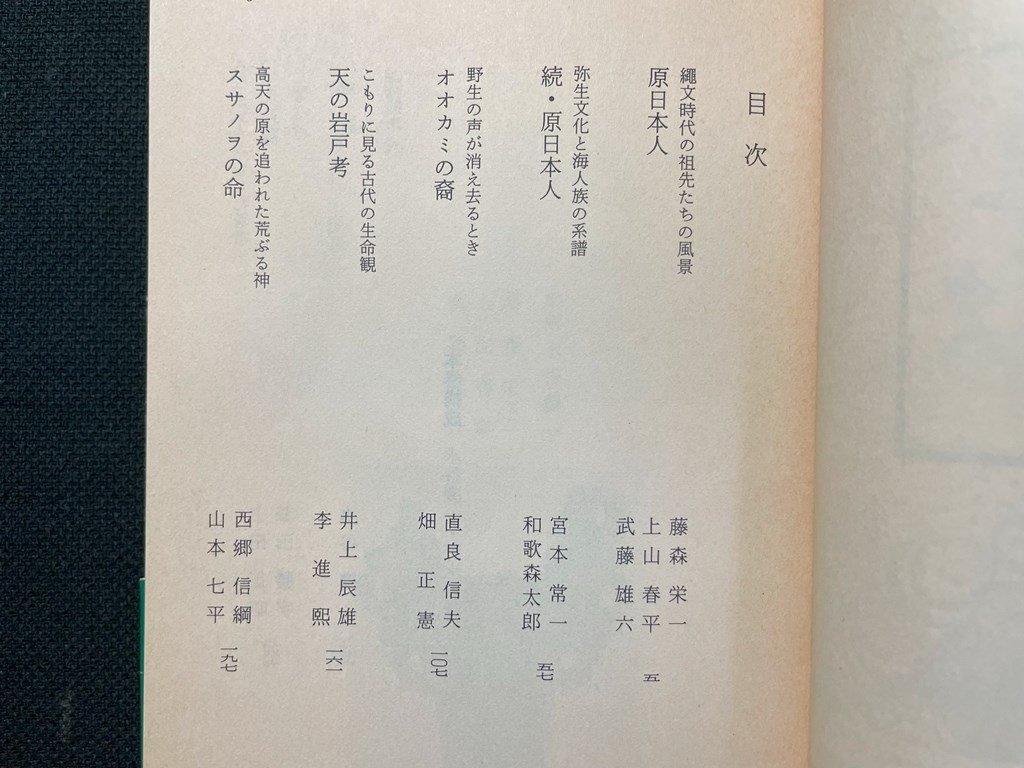 目次
縄文時代の祖先たちの風景
原日本人
藤森栄一
上山春平
武藤雄六
五
弥生文化と海人族の系譜
続・原日本人
宮本常一
和歌森太郎
五七
野生の声が消え去るとき
オオカミの裔
直良信夫
畑正憲
一〇七
こもりに見る古代の生命観
天の岩戸考
井上辰雄
李進熙
一六一
高天の原を追われた荒ぶる神
スサノヲの命
西郷信綱
山本七平
一九七